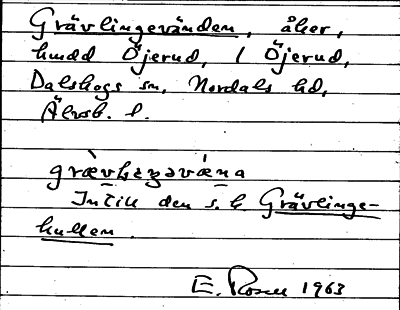 Grävlingevänden, åker,
hmdd Öjerud, 1 Öjerud,
Dalskogs sn, Nordals hd,
Älvsb. l.
Intill den s. k. Grävlinge-
kullen.
E. Rosell 1963